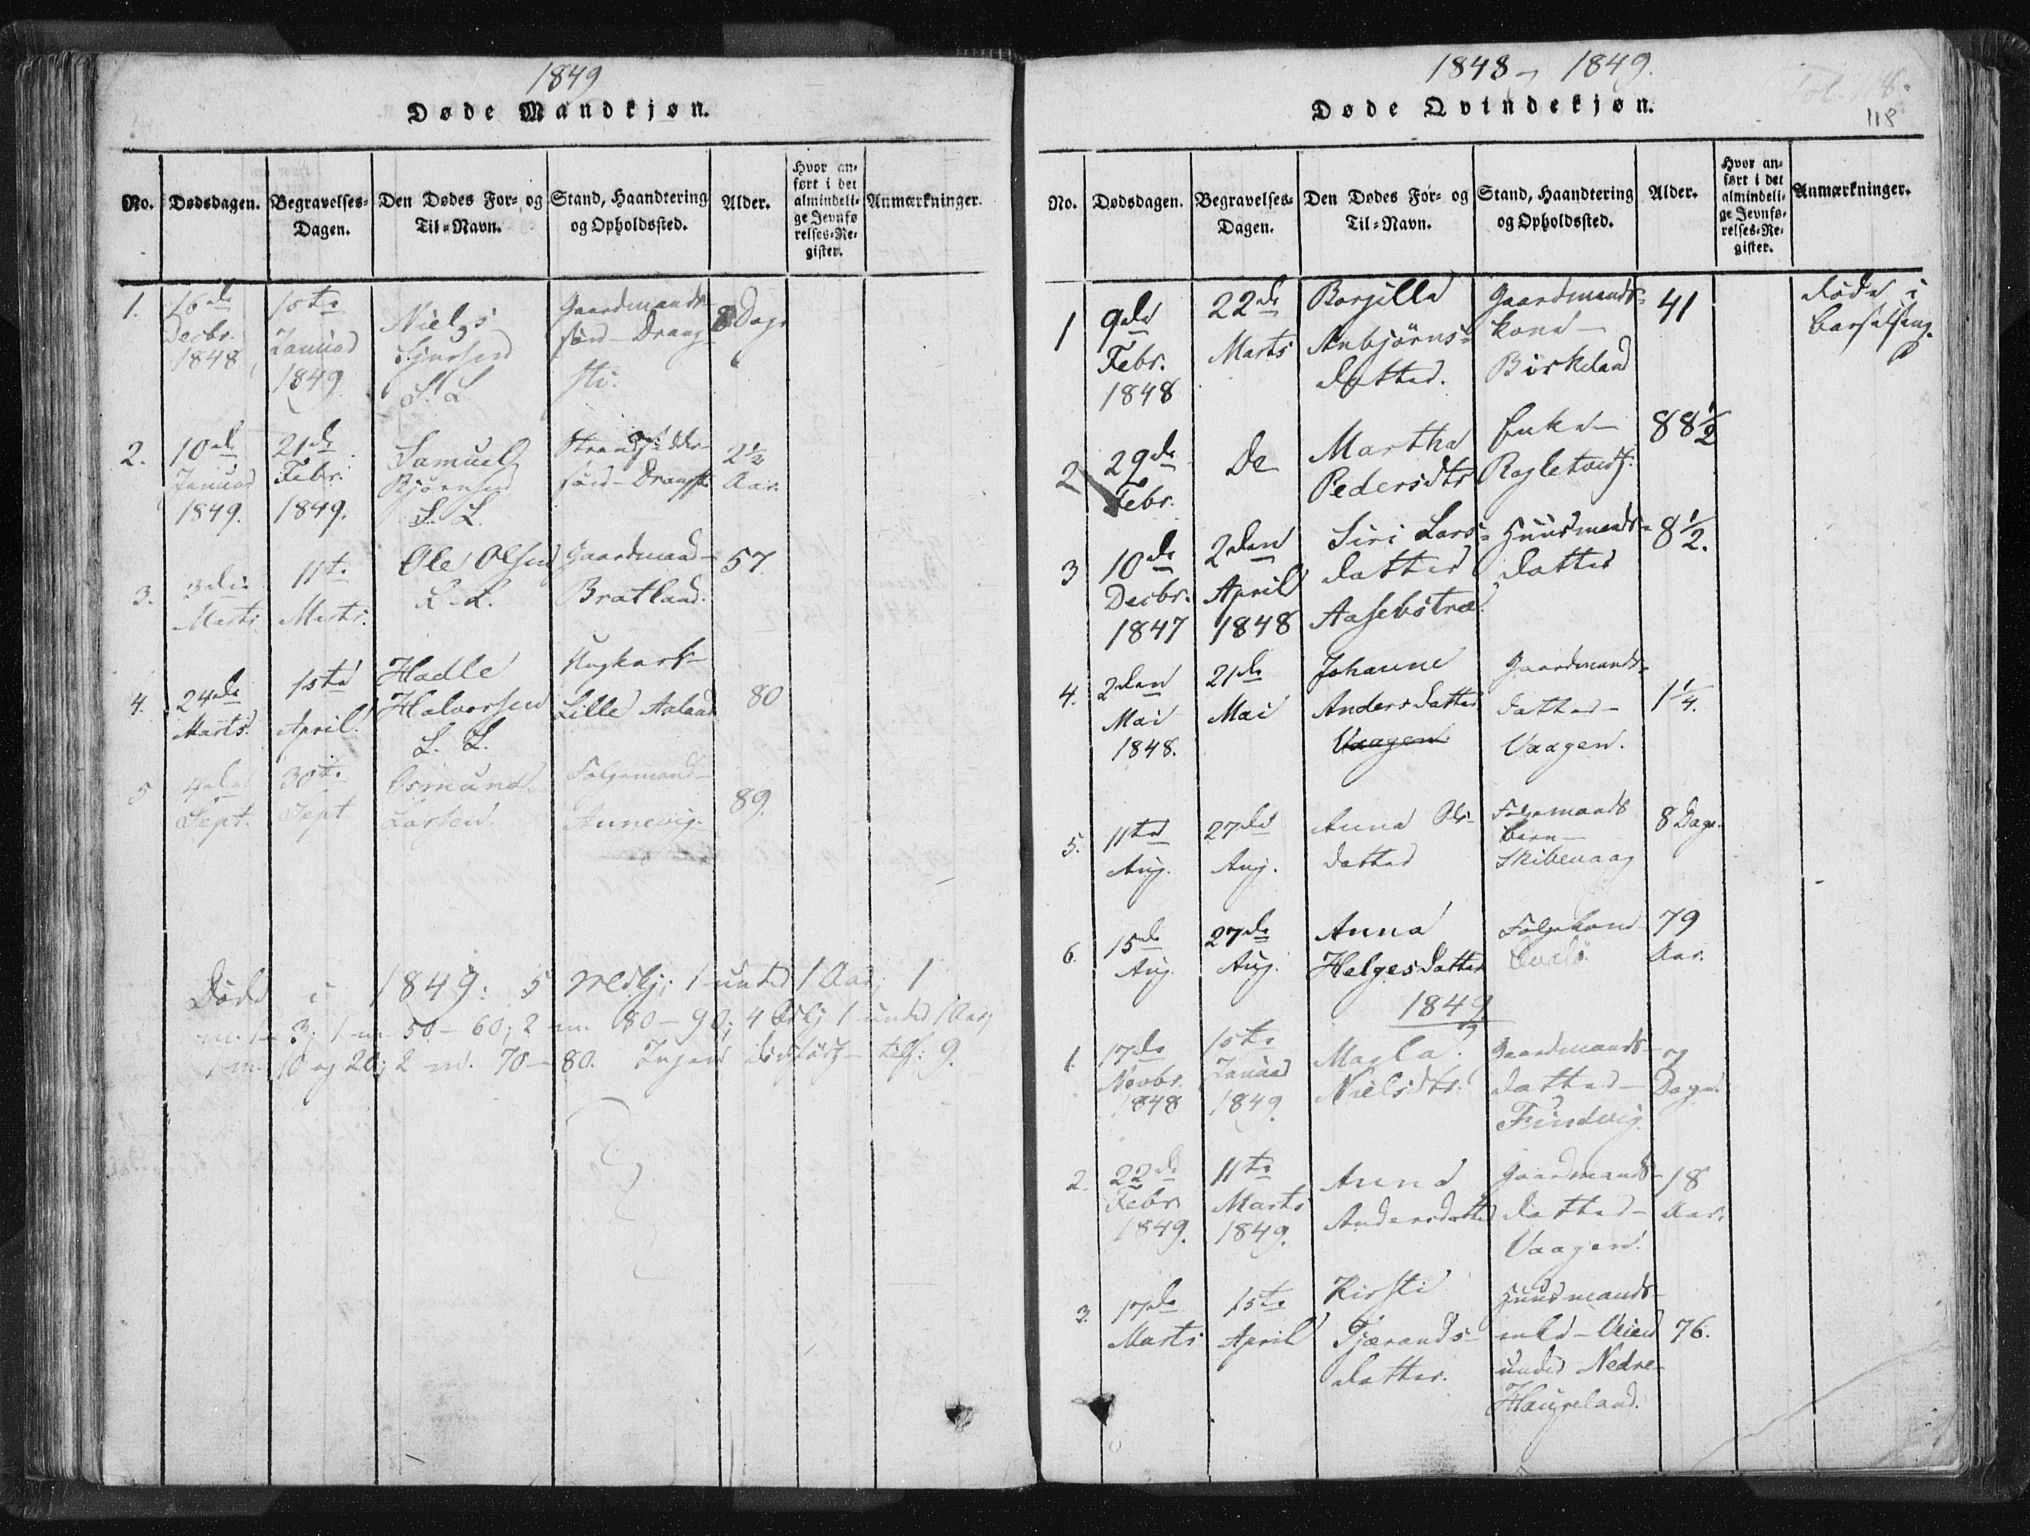 1849
Døde Mandkjøn.
No.
Dødsdagen.
Begravelses-
Dagen.
Den Dødes For- og
Til-Navn.
Stand, Haandtering
og Opholdssted.
Alder.
Hvor an-
ført i det
almindeli-
ge Jevnfø
relses-Re-
gister.
Anmærkninger.
1.
Decbr.
1848
Januar
1849
Niels
Gaardmands
8 Dage
2.
10de
Januar
1849.
21de
Febr.
1849.
Samuel
Bjørnsen
S. L.
2½
Aar.
3.
3die
Marts
11te
Marts.
Ole Olsen
L. L.
Gaardmand
Bratland.
57.
4.
24de
Marts.
15te
April.
Hadle
Halvorsen
L. L.
Lille Aaland
80
5
4de
Sept.
30te
Sept
Osmund
Larsen.
Folgemand
Annevig.
89.
Døde i 1849: 5 Mdkj: 1 under 1 Aar; 1
m. 1-3; 1 m. 50-60; 2 m. 80-90; 4 Qvkj 1 under 1 Aar;
1 m. 10 og 20; 2 m. 70-80. Ingen dødfødt - tils: 9.
1848, 1849.
Døde Qvindekjøn.
118
No.
Dødsdagen.
Begravelses-
Dagen.
Den Dødes For- og
Til-Navn.
Stand, Haandtering
og Opholdssted.
Alder.
Hvor an-
ført i det
almindeli-
ge Jevnfø-
relses-Re-
gister.
Anmærkninger.
1
9de
Febr.
1848
22de
Marts
Borgilla
Anbjørns-
datter.
Gaardmands-
kone
Birkeland
41
døde i
barselseng.
2
29de
Febr.
Do
Martha
Pedersdtr
Enke
88½
3
10de
Decbr.
1847
2den
April
1848
Siri Lars-
datter
Huusmands-
datter
8½.
4.
2den
Mai
1848.
21de
Mai
Johanne
Andersdatter
Vaagen
Gaardmands-
datter
Vaagen.
1¼.
5.
11te
Aug.
27de
Aug.
Anna Ols-
datter
Folgemands
barn
Skibevaag
8 Dage.
6.
15de
Aug.
27de
Aug.
Anna
Helgesdatter
Folgekone
79
Aar.
1849
1.
17de
Novbr.
1848
15te
Januar
1849
Magla
Nielsdtr.
Gaardmands-
datter
Findvig.
Dage.
2.
22de
Febr.
1849.
11te
Marts
1849.
Anna
Andersdatter
Gaardmands-
datter
Vaagen.
18
Aar.
3.
17de
Marts
15te
April
Kirsti
Tjærands-
datter.
Huusmands-
enke - Veien
under Nedre-
Haugeland.
76.